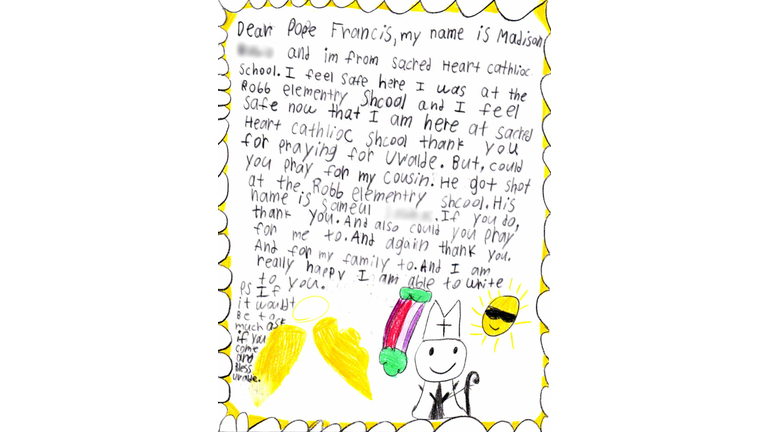 Dear Pope Francis, my name is Madison
and im from sacred Heart cathlioc
School. I feel safe here I was at the
Robb elementry Shcool and I feel
safe now that I am here at sacred
Heart cathlioc shcool thank you
for praying for Uvalde. But, could
you pray for my cousin. He got shot
at the Robb elementry shcool. His
name is Sameul . If you do,
thank you. And also could you pray
for me to. And again thank you.
And for my family to. And I am
really happy I am able to write
to you.
ps If
it would't
Be to
much ask
if you
come
and
Bless
uvalde.